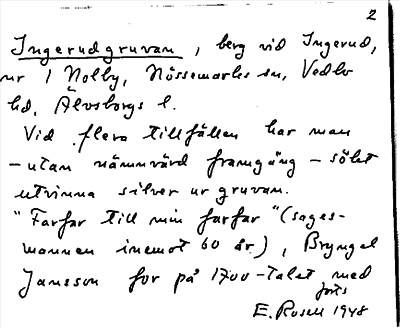 2
Ingerudgruvan, berg vid Ingerud,
nr 1 Nolby, Nössemarks sn, Vedbo
hd, Älvsborgs l.
Vid flera tillfällen har man
– utan nämnvärd framgång – sökt
utvinna silver ur gruvan.
"Farfar till min farfar" (sages-
mannen inemot 60 år), Bryngel
Jansson for på 1700-talet med
forts
E. Rosell 1948